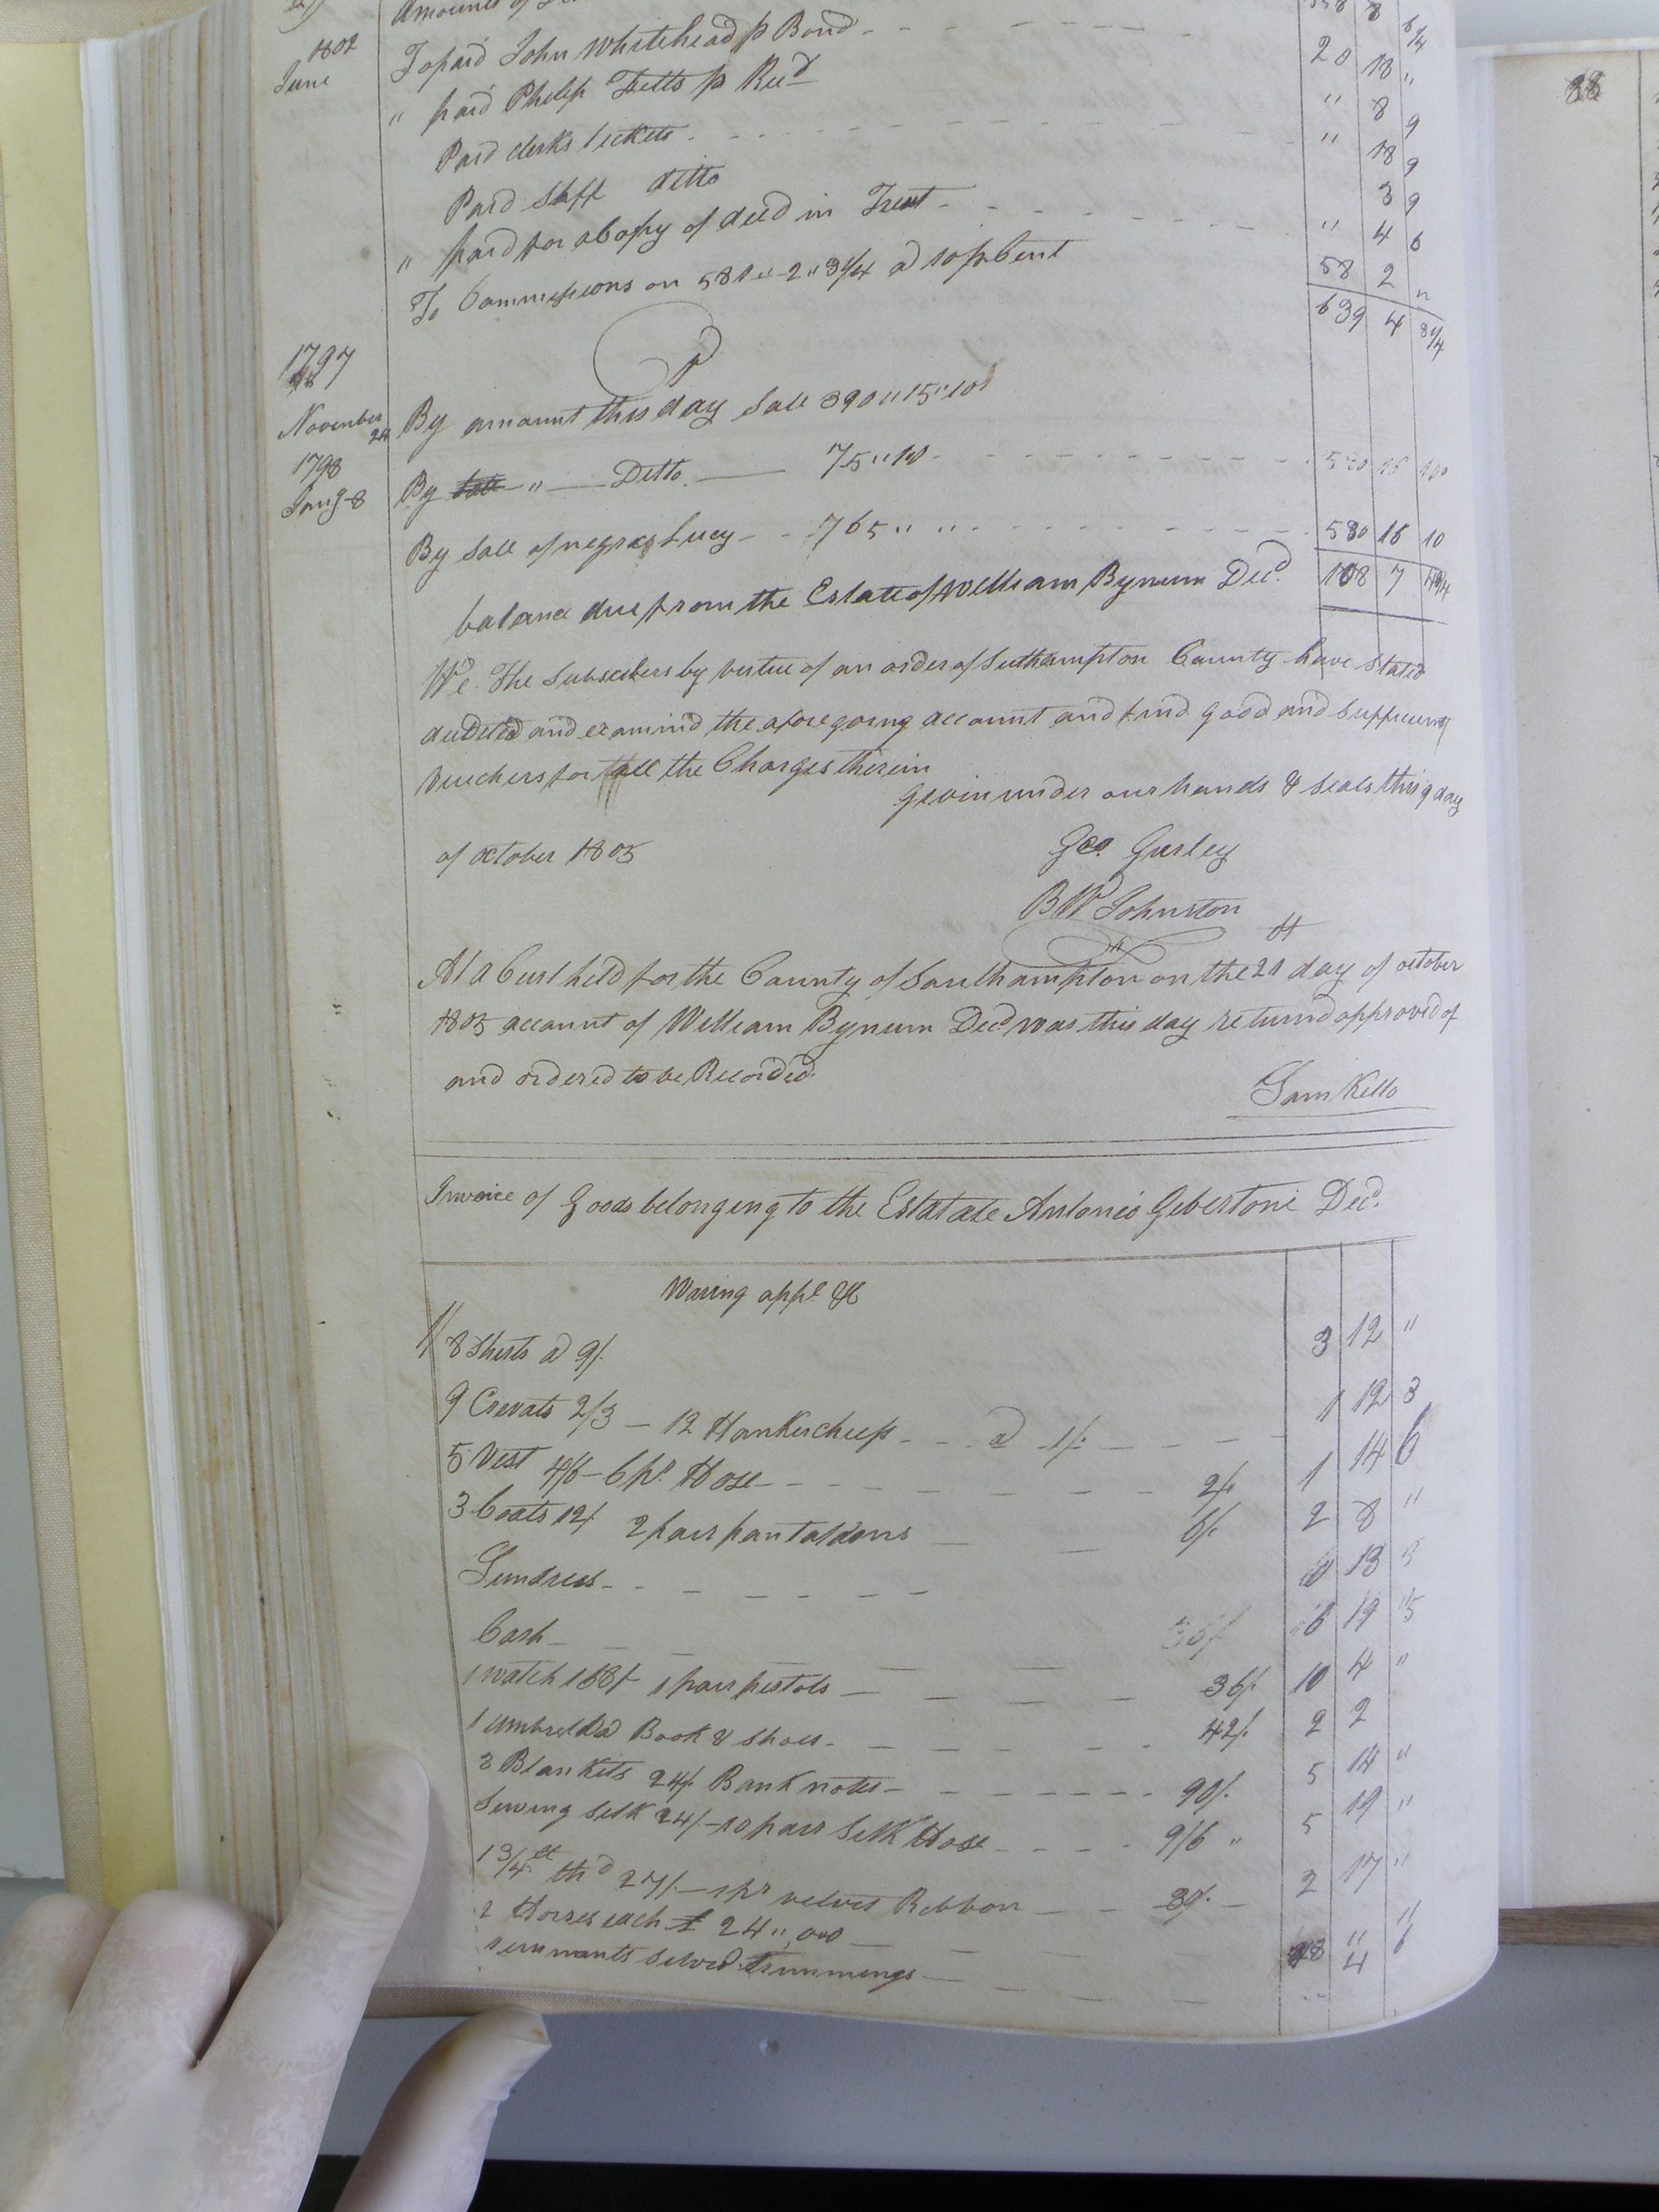 Amounts of
1802 To paid John Whitehead p Bond 20 18 "
June " paid Philip Fetts p Recd " 8 9
Paid clerks tickets " 18 9
Paid Shff ditto 3 9
" paid for a Copy of deed in Trust " 4 6
To Commissions on 581 " 2 " 3 1/4 a 10 p Cent 58 2 "
639 4 8 1/4
1797
November 24 By amount this day Sale 390 " 15 " 10
1798
Jany 8 By Sale " Ditto 75 " 10 530 15 10
By Sale of negroe Lucy 765 " " 530 15 10
balance due from the Estate of William Bynum Decd. 108 7
We The Subscribers by vertue of an order of Suthampton County have Stated
audited and examind the afore going account and find good and Suffucung
vouchers for all the Charges therein
given under our hands & seals this 9 day
of october 1805
Geo. Gurley
B W Johnston
At a Curt held for the County of Southampton on the 21 day of october
1805 account of William Bynum Decd was this day returnd approvd of
and ordered to be Recorded
Sam Kello
Invoice of Goods belonging to the Estatate Antonio Gebertoni Decd.
Waring appl. &c
8 Sherts a 9/. 3 12 "
9 Crevats 2/3 — 12 Hankercheefs a 1/. 1 12 3
5 Vest 4/6 — 6 pr. Hose 2/. 1 14 6
3 Coats 12/ 2 pair pantaloons 6/. 2 8 "
Sundrees 13
Cash 6 19 5
1 watch 168/ 1 pair pistols 36/. 10 4 "
1 umbrella Book & Shoes 42/. 2 2
3 Blankits 24/. Bank notes 90/. 5 14 "
Sewing Silk 24/. — 10 pair Silk Hose 9/6 " 5 19 "
1 3/4 thd 27/. — 1 ps velvet Ribbon 30/. 2 17 "
2 Horses each £ 24 " , 0 " 0 48 " "
remnants Selvd Trimmings 4 6
88